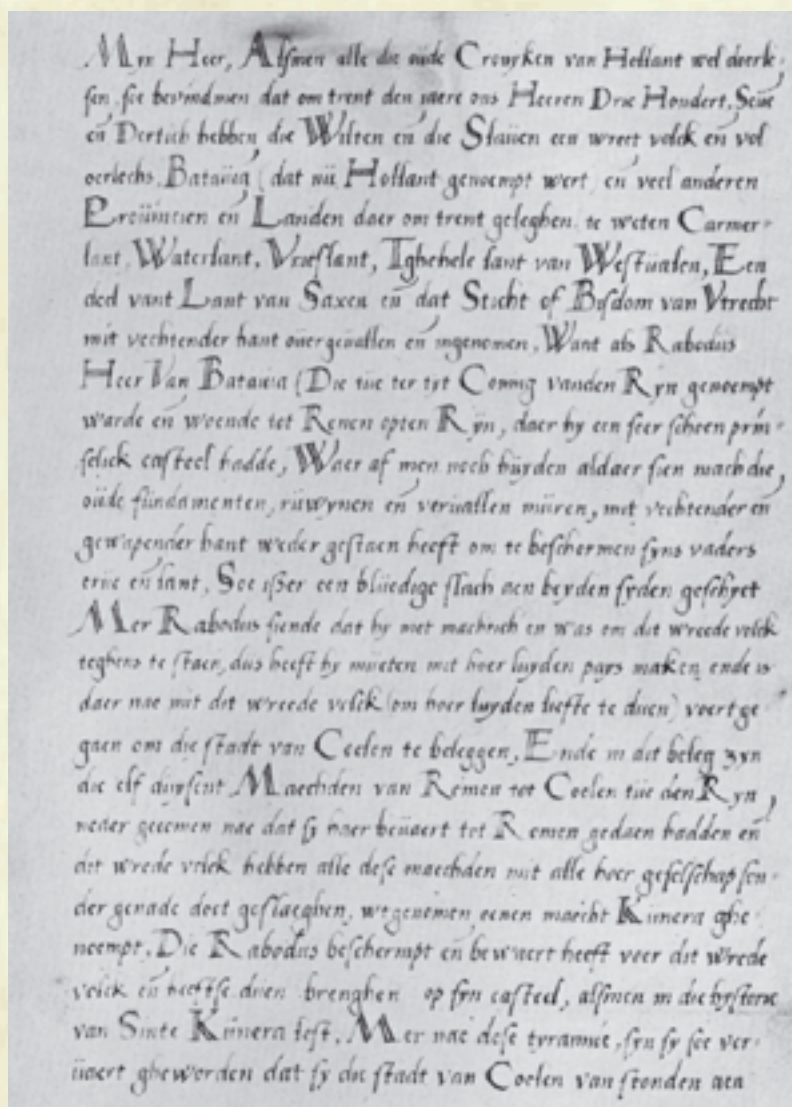 Myn Heer, Alsmen alle die oude Cronyken van Hollant wel doerle-
sen, soe bevindmen dat om trent den jaere ons Heeren Drie Hondert, Seve
eñ Dertich hebben die Wilten eñ die Slaven een wreet volck eñ vol
oerlechs, Batavia (dat nü Hollant genoempt wert) eñ veel anderen
Provintien eñ Landen daer om trent geleghen, te weten Carmer-
lant, Waterlant, Vrieslant, Tghehele lant van Westvalen, Een
deel vant Lant van Saxen eñ dat Sticht of Bisdom van Vtrecht
mit vechtender hant overgevallen eñ ingenomen, Want als Rabodus
Heer Van Batavia (Die tüe ter tyt Conning vanden Ryn genoempt
warde eñ woende tot Renen opten Ryn, daer hy een seer scheen prin-
selick casteel hadde, Waer af men noch hüyden aldaer sien mach die
oüde fündamenten, rüwynen eñ vervallen müren, mit vechtender en
gewapender hant weder gestaen heeft om te beschermen syns vaders
erve eñ lant, Soe isser een blüedige slach aen beyden syden geschyet
Mer Rabodus siende dat hy niet machtich en was om dit wreede volck
teghens te staen, dus heeft hy müeten mit hoer luyden pays maken ende is
daer nae mit dit wreede volck (om hoer luyden liefte te düen) voert ge
gaen om die stadt van Coelen te beleggen, Ende in dit beleg zyn
die elf duysent Maechden van Romen tot Coelen tüe den Ryn
neder gecomen nae dat sy haer bevaert tot Romen gedaen hadden eñ
dit wrede volck hebben alle dese maechden mit alle hoer geselschap son-
der genade doet geslaeghen, wtgenomen eenen maecht Künera ghe-
noempt, Die Rabodus beschermpt eñ bewaert heeft voer dit wrede
volck eñ heeftse düen brenghen op syn casteel, alsmen in die hystorie
van Sinte Künera lest, Mer nae dese tyrannie, syn sy soe ver-
vaert gheworden dat sy die stadt van Coelen van stonden aen